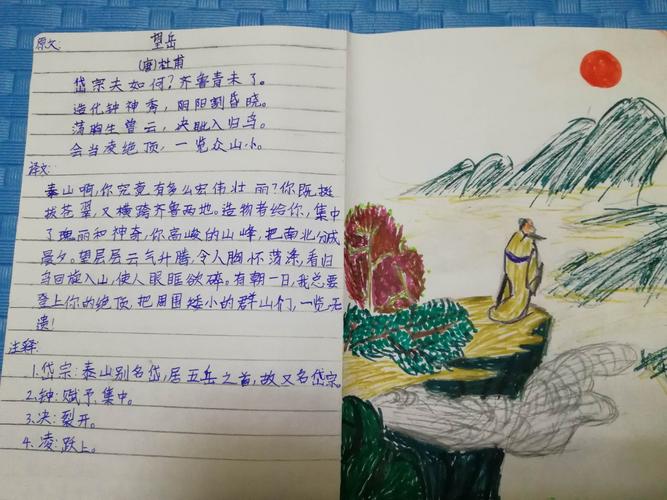 原文: 望岳
(唐)杜甫
岱宗夫如何?齐鲁青未了。
造化钟神秀,阴阳割昏晓。
荡胸生曾云,决眦入归鸟。
会当凌绝顶,一览众山小。
译文:
泰山啊,你究竟有多么宏伟壮丽?你既挺
拔苍翠,又横跨齐鲁两地。造物者给你,集中
了瑰丽和神奇,你高峻的山峰,把南北分成
晨夕。望层层云气升腾,令人胸怀荡涤,看归
鸟回旋入山,使人眼眶欲碎。有朝一日,我总要
登上你的绝顶,把周围矮小的群山们,一览无
遗!
注释:
1.岱宗:泰山别名岱,居五岳之首,故又名岱宗。
2.钟:赋予、集中。
3.决:裂开。
4.凌:跃上。